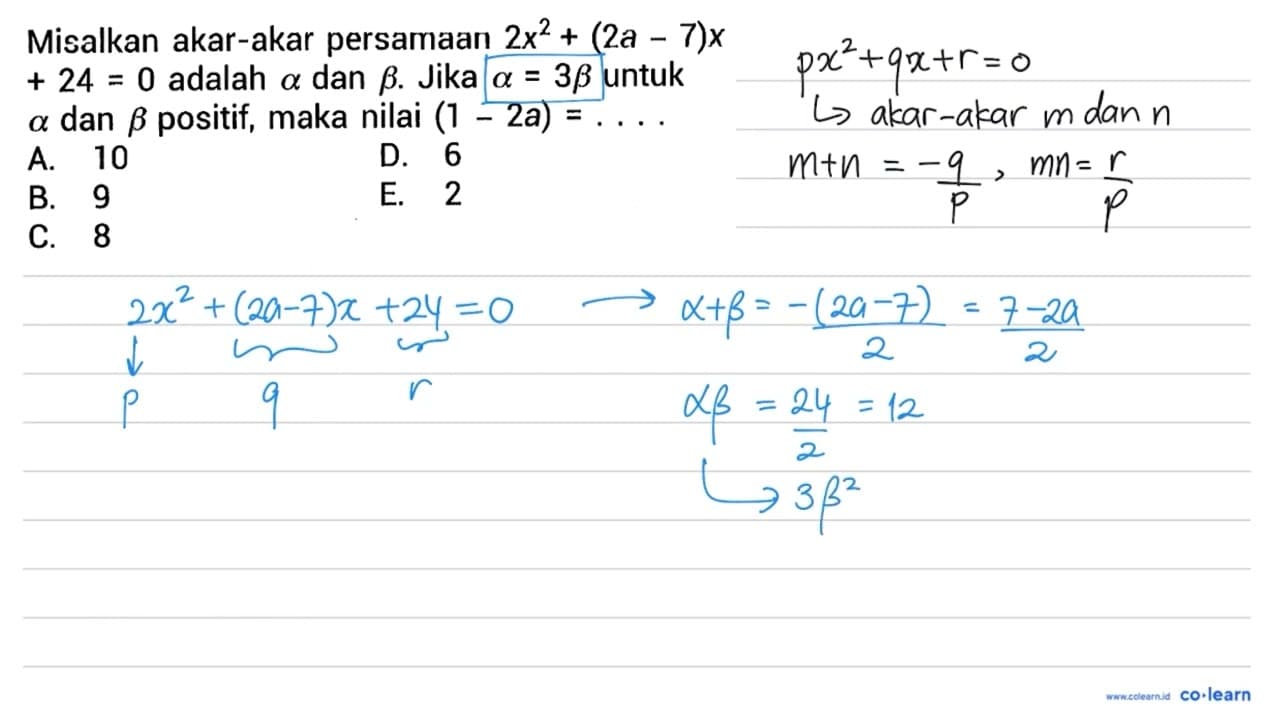 Misalkan akar-akar persamaan 2x² + (2a – 7)x
+ 24 = 0 adalah α dan β. Jika α = 3β untuk
α dan β positif, maka nilai (1 – 2a) = . . . .
A. 10 D. 6
B. 9 E. 2
C. 8
px² + qx + r = 0
↳ akar-akar m dan n
m+n = -q/p , mn = r/p
2x² + (2a-7)x + 24 = 0 → α+β = -(2a-7)/2 = 7-2a/2
↓
p q r
αβ = 24/2 = 12
↳ 3β²
www.colearn.id co·learn